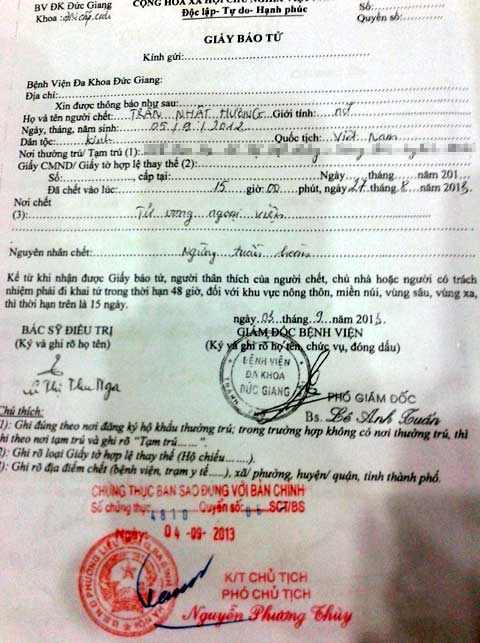 BV ĐK Đức Giang
Khoa: cấp cứu
CỘNG HÒA XÃ HỘI CHỦ NGHĨA VIỆT
Độc lập- Tự do- Hạnh phúc
Số:
Quyển số:
GIẤY BÁO TỬ
Kính gửi:
Bệnh Viện Đa Khoa Đức Giang:
Địa chỉ:
Xin được thông báo như sau:
Họ và tên người chết: TRẦN NHẬT HƯỜNG Giới tính: nữ
Ngày, tháng, năm sinh: 05/9/2012
Dân tộc: kinh Quốc tịch: Việt Nam
Nơi thường trú/ Tạm trú (1):
Giấy CMND/ Giấy tờ hợp lệ thay thế (2):
Số: cấp tại: Ngày tháng năm 201
Đã chết vào lúc: 15 giờ 00 phút, ngày 27 tháng 8 năm 2013
Nơi chết
(3): Tử vong ngoại viện
Nguyên nhân chết: Ngừng tuần hoàn
Kể từ khi nhận được Giấy báo tử, người thân thích của người chết, chủ nhà hoặc người có trách
nhiệm phải đi khai tử trong thời hạn 48 giờ, đối với khu vực nông thôn, miền núi, vùng sâu, vùng xa,
thì thời hạn trên là 15 ngày.
ngày 03 tháng 9 năm 2013
BÁC SỸ ĐIỀU TRỊ
(Ký và ghi rõ họ tên)
GIÁM ĐỐC BỆNH VIỆN
(Ký và ghi rõ họ tên, chức vụ, đóng dấu)
BỆNH VIỆN
ĐA KHOA
ĐỨC GIANG
Thị Thu Nga
PHÓ GIÁM ĐỐC
Bs. Lê Anh Tuấn
Chú thích:
1): Ghi đúng theo nơi đăng ký hộ khẩu thường trú; trong trường hợp không có nơi thường trú, thì
hi theo nơi tạm trú và ghi rõ "Tạm trú……".
2): Ghi rõ loại Giấy tờ hợp lệ thay thế (Hộ chiếu…….).
): Ghi rõ địa điểm chết (bệnh viện, trạm y tế…..), xã/ phường, huyện/ quận, tỉnh thành phố.
CHỨNG THỰC BẢN SAO ĐÚNG VỚI BẢN CHÍNH
Số chứng thực: 4810 Quyển số: SCT/BS
Ngày: 04-09-2013
K/T CHỦ TỊCH
PHÓ CHỦ TỊCH
Nguyễn Phương Thùy